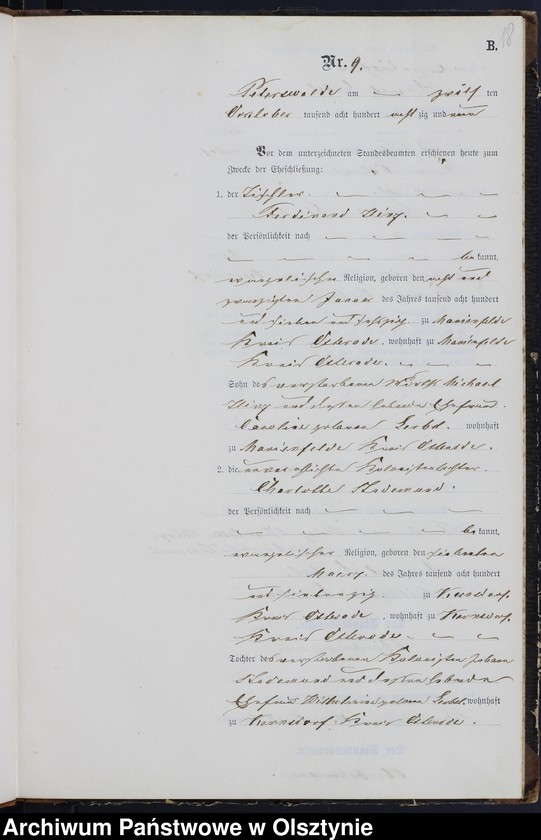 B.
18
Nr. 9.
Peterswalde am zwölften
October tausend acht hundert achtzig und neun
Vor dem unterzeichneten Standesbeamten erschienen heute zum
Zwecke der Eheschließung:
1. der Tischler
Ferdinand
der Persönlichkeit nach
bekannt,
evangelischer Religion, geboren den acht und
zwanzigsten Januar des Jahres tausend acht hundert
und sieben und sechzig zu Marienfelde
Kreis Osterode, wohnhaft zu Marienfelde
Kreis Osterode.
Sohn des verstorbenen Wirth Michael
und dessen lebende Ehefrau
Caroline geborene wohnhaft
zu Marienfelde Kreis Osterode.
2. die unverehelichte Kolonistentochter
Charlotte
der Persönlichkeit nach
bekannt,
evangelischer Religion, geboren den siebenten
Maerz des Jahres tausend acht hundert
und siebenzig zu
Kreis Osterode, wohnhaft zu
Kreis Osterode
Tochter des verstorbenen Kolonisten Johann
und dessen lebende
Ehefrau Wilhelmine geborene wohnhaft
zu Kreis Osterode.
Archiwum Państwowe w Olsztynie